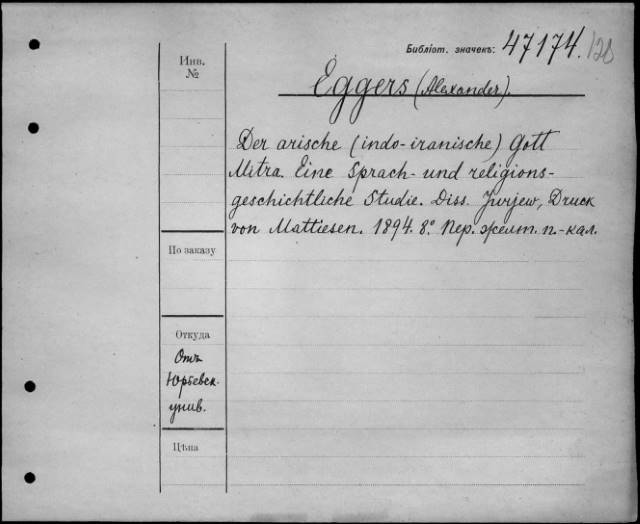 Библіот. значекъ: 47174. /120
Инв.
№
Eggers (Alexander).
Der arische (indo-iranische) Gott
Mitra. Eine Sprach- und religions-
geschichtliche Studie. Diss. Jurjew, Druck
von Mattiesen. 1894. 8° Пер. желт. п.-кал.
По заказу
Откуда
Отъ
Юрьевск.
унив.
Цѣна